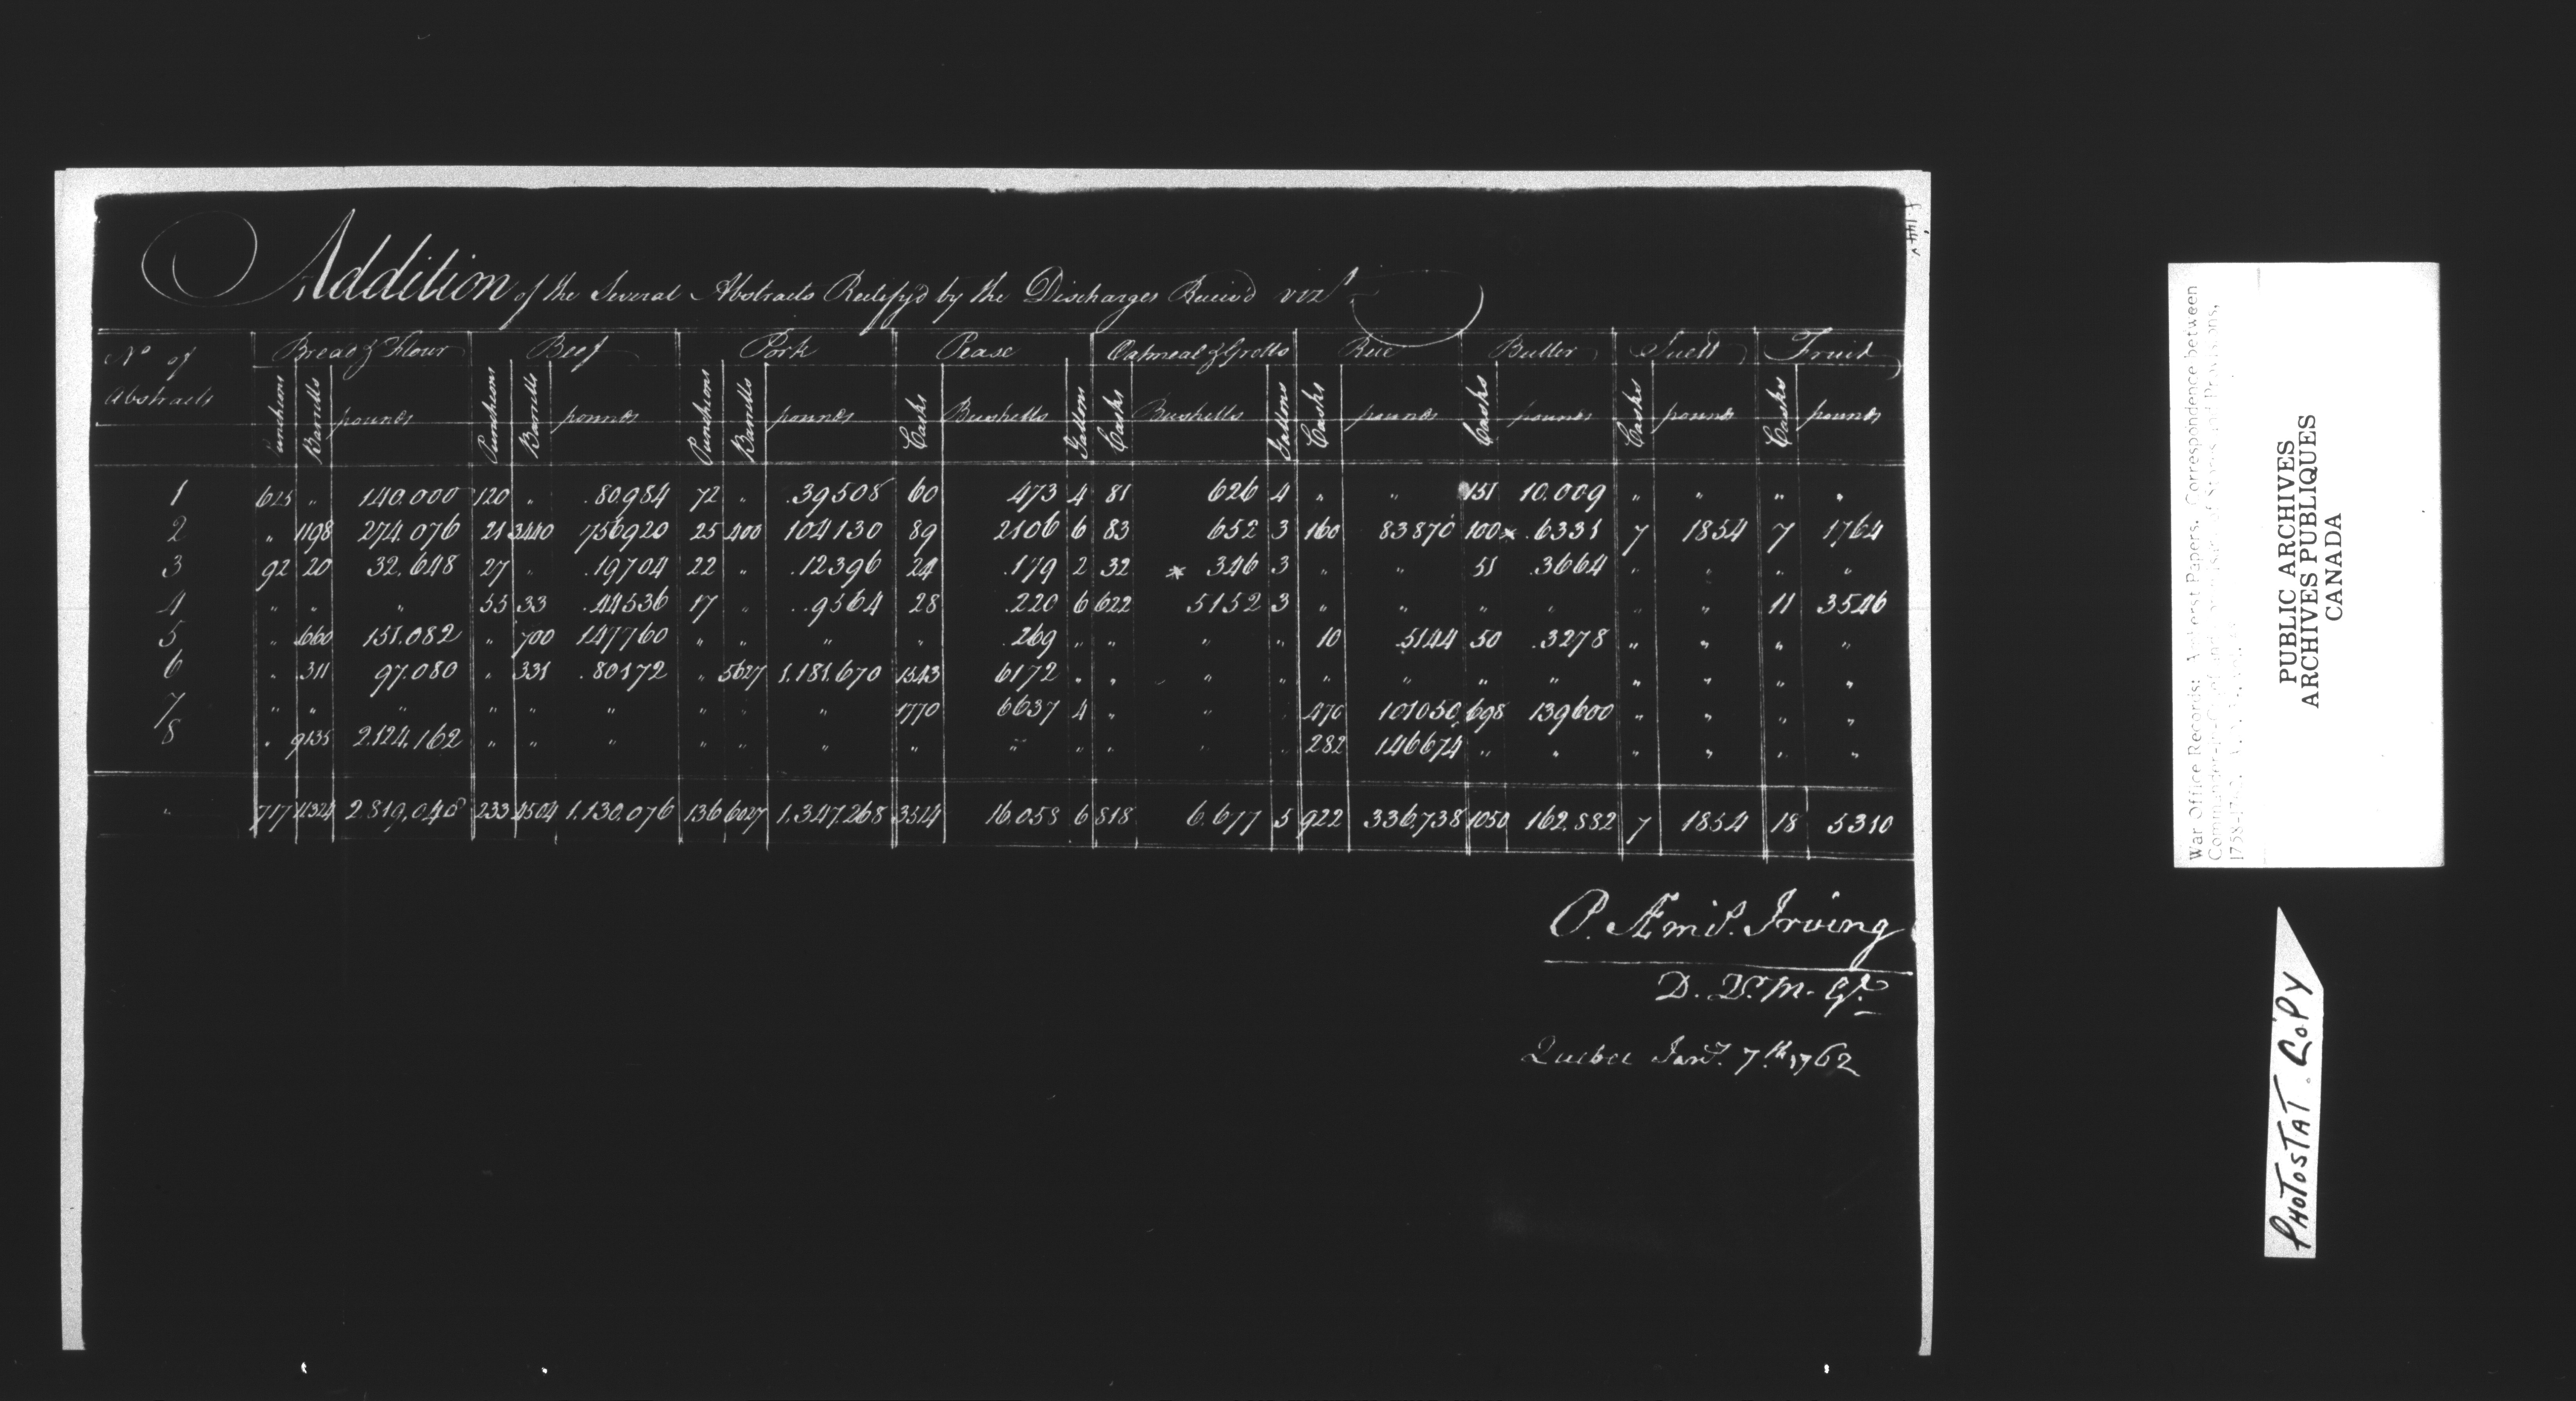 Addition of the Several Abstracts Rectify'd by the Discharges Receiv'd vizt
No of Abstracts | Bread & Flour | Beef | Pork | Pease | Oatmeal & Grotts | Rice | Butter | Suett | Fruit
Puncheons | Barrells | pounds | Puncheons | Barrells | pounds | Puncheons | Barrells | pounds | Casks | Bushells | Gallons | Casks | Bushells | Gallons | Casks | pounds | Casks | pounds | Casks | pounds | Casks | pounds
1 | 625 | " | 140.000 | 120 | " | .80984 | 72 | " | .39508 | 60 | .473 | 4 | 81 | 626 | 4 | " | " | 151 | 10.009 | " | " | " | "
2 | " | 1198 | 274.076 | 21 | 3440 | 756920 | 25 | 400 | 104130 | 89 | 2106 | 6 | 83 | 652 | 3 | 160 | 83870 | 100 | x .6331 | 7 | 1854 | 7 | 1764
3 | 92 | 20 | 32.648 | 27 | " | .19704 | 22 | " | .12396 | 24 | .179 | 2 | 32 | * 346 | 3 | " | " | 51 | .3664 | " | " | " | "
4 | " | " | " | 55 | 33 | .44536 | 17 | " | ..9564 | 28 | .220 | 6 | 622 | 5152 | 3 | " | " | " | " | " | " | 11 | 3546
5 | " | 660 | 151.082 | " | 700 | 147760 | " | " | " | " | .269 | " | " | " | " | 10 | .5144 | 50 | .3278 | " | " | " | "
6 | " | 311 | 97.080 | " | 331 | .80172 | " | 5627 | 1.181.670 | 1543 | 6172 | " | " | " | " | " | " | " | " | " | " | " | "
7 | " | " | " | " | " | " | " | " | " | 1770 | 6637 | 4 | " | " | " | 470 | 101050 | 698 | 139600 | " | " | " | "
8 | " | 9135 | 2.124.162 | " | " | " | " | " | " | " | " | " | " | " | " | 282 | 146674 | " | " | " | " | " | "
" | 717 | 11324 | 2.819.048 | 233 | 4504 | 1.130.076 | 136 | 6027 | 1.347.268 | 3514 | 16.058 | 6 | 818 | 6.677 | 5 | 922 | 336,738 | 1050 | 162.882 | 7 | 1854 | 18 | 5310
P. Æmil. Irving
D. Qr. M. Gl.
Quebec Janry. 7th 1762
War Office Records: Amherst Papers. Correspondence between
Commander-in-Chief and of Stores and Provisions,
1758-
PUBLIC ARCHIVES
ARCHIVES PUBLIQUES
CANADA
PHOTOSTAT. COPY